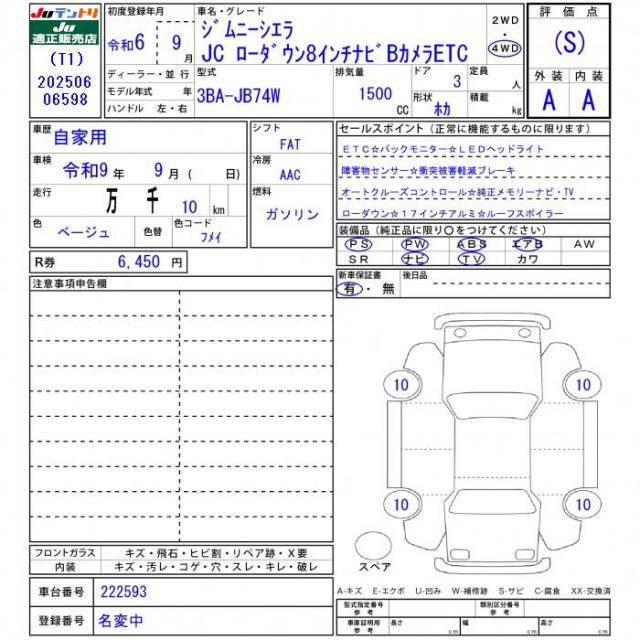 Juテントリ
Ju
適正販売店
(T1)
202506
06598
初度登録年月
令和6 9 月
ディーラー・並 行
モデル年式 年
ハンドル 左・右
車名・グレード
ジムニーシエラ
JC ローダウン8インチナビBカメラETC
2WD
・
4WD
型式
3BA-JB74W
排気量
1500 CC
ドア
3
形状
ホカ
定員
人
積載
kg
評 価 点
(S)
外 装 内 装
A A
車歴
自家用
車検
令和9 年 9 月 ( 日)
走行
万 千 10 km
色
ベージュ
色替
色コード
フメイ
シフト
FAT
冷房
AAC
燃料
ガソリン
R券 6,450 円
セールスポイント (正常に機能するものに限ります)
ETC☆バックモニター☆LEDヘッドライト
障害物センサー☆衝突被害軽減ブレーキ
オートクルーズコントロール☆純正メモリーナビ・TV
ローダウン☆17インチアルミ☆ルーフスポイラー
装備品 (純正品に限り〇をつけてください)
PS PW ABS エアB AW
SR ナビ TV カワ
新車保証書
有・無
後日品
注意事項申告欄
10 10
10 10
スペア
フロントガラス キズ・飛石・ヒビ割・リペア跡・X要
内装 キズ・汚レ・コゲ・穴・スレ・キレ・破レ
車台番号 222593
登録番号 名変中
A-キズ E-エクボ U-凹み W-補修跡 S-サビ C-腐食 XX-交換済
型式指定番号
参 考
類別区分番号
参 考
車庫証明用
参 考
長さ cm 幅 cm 高さ cm